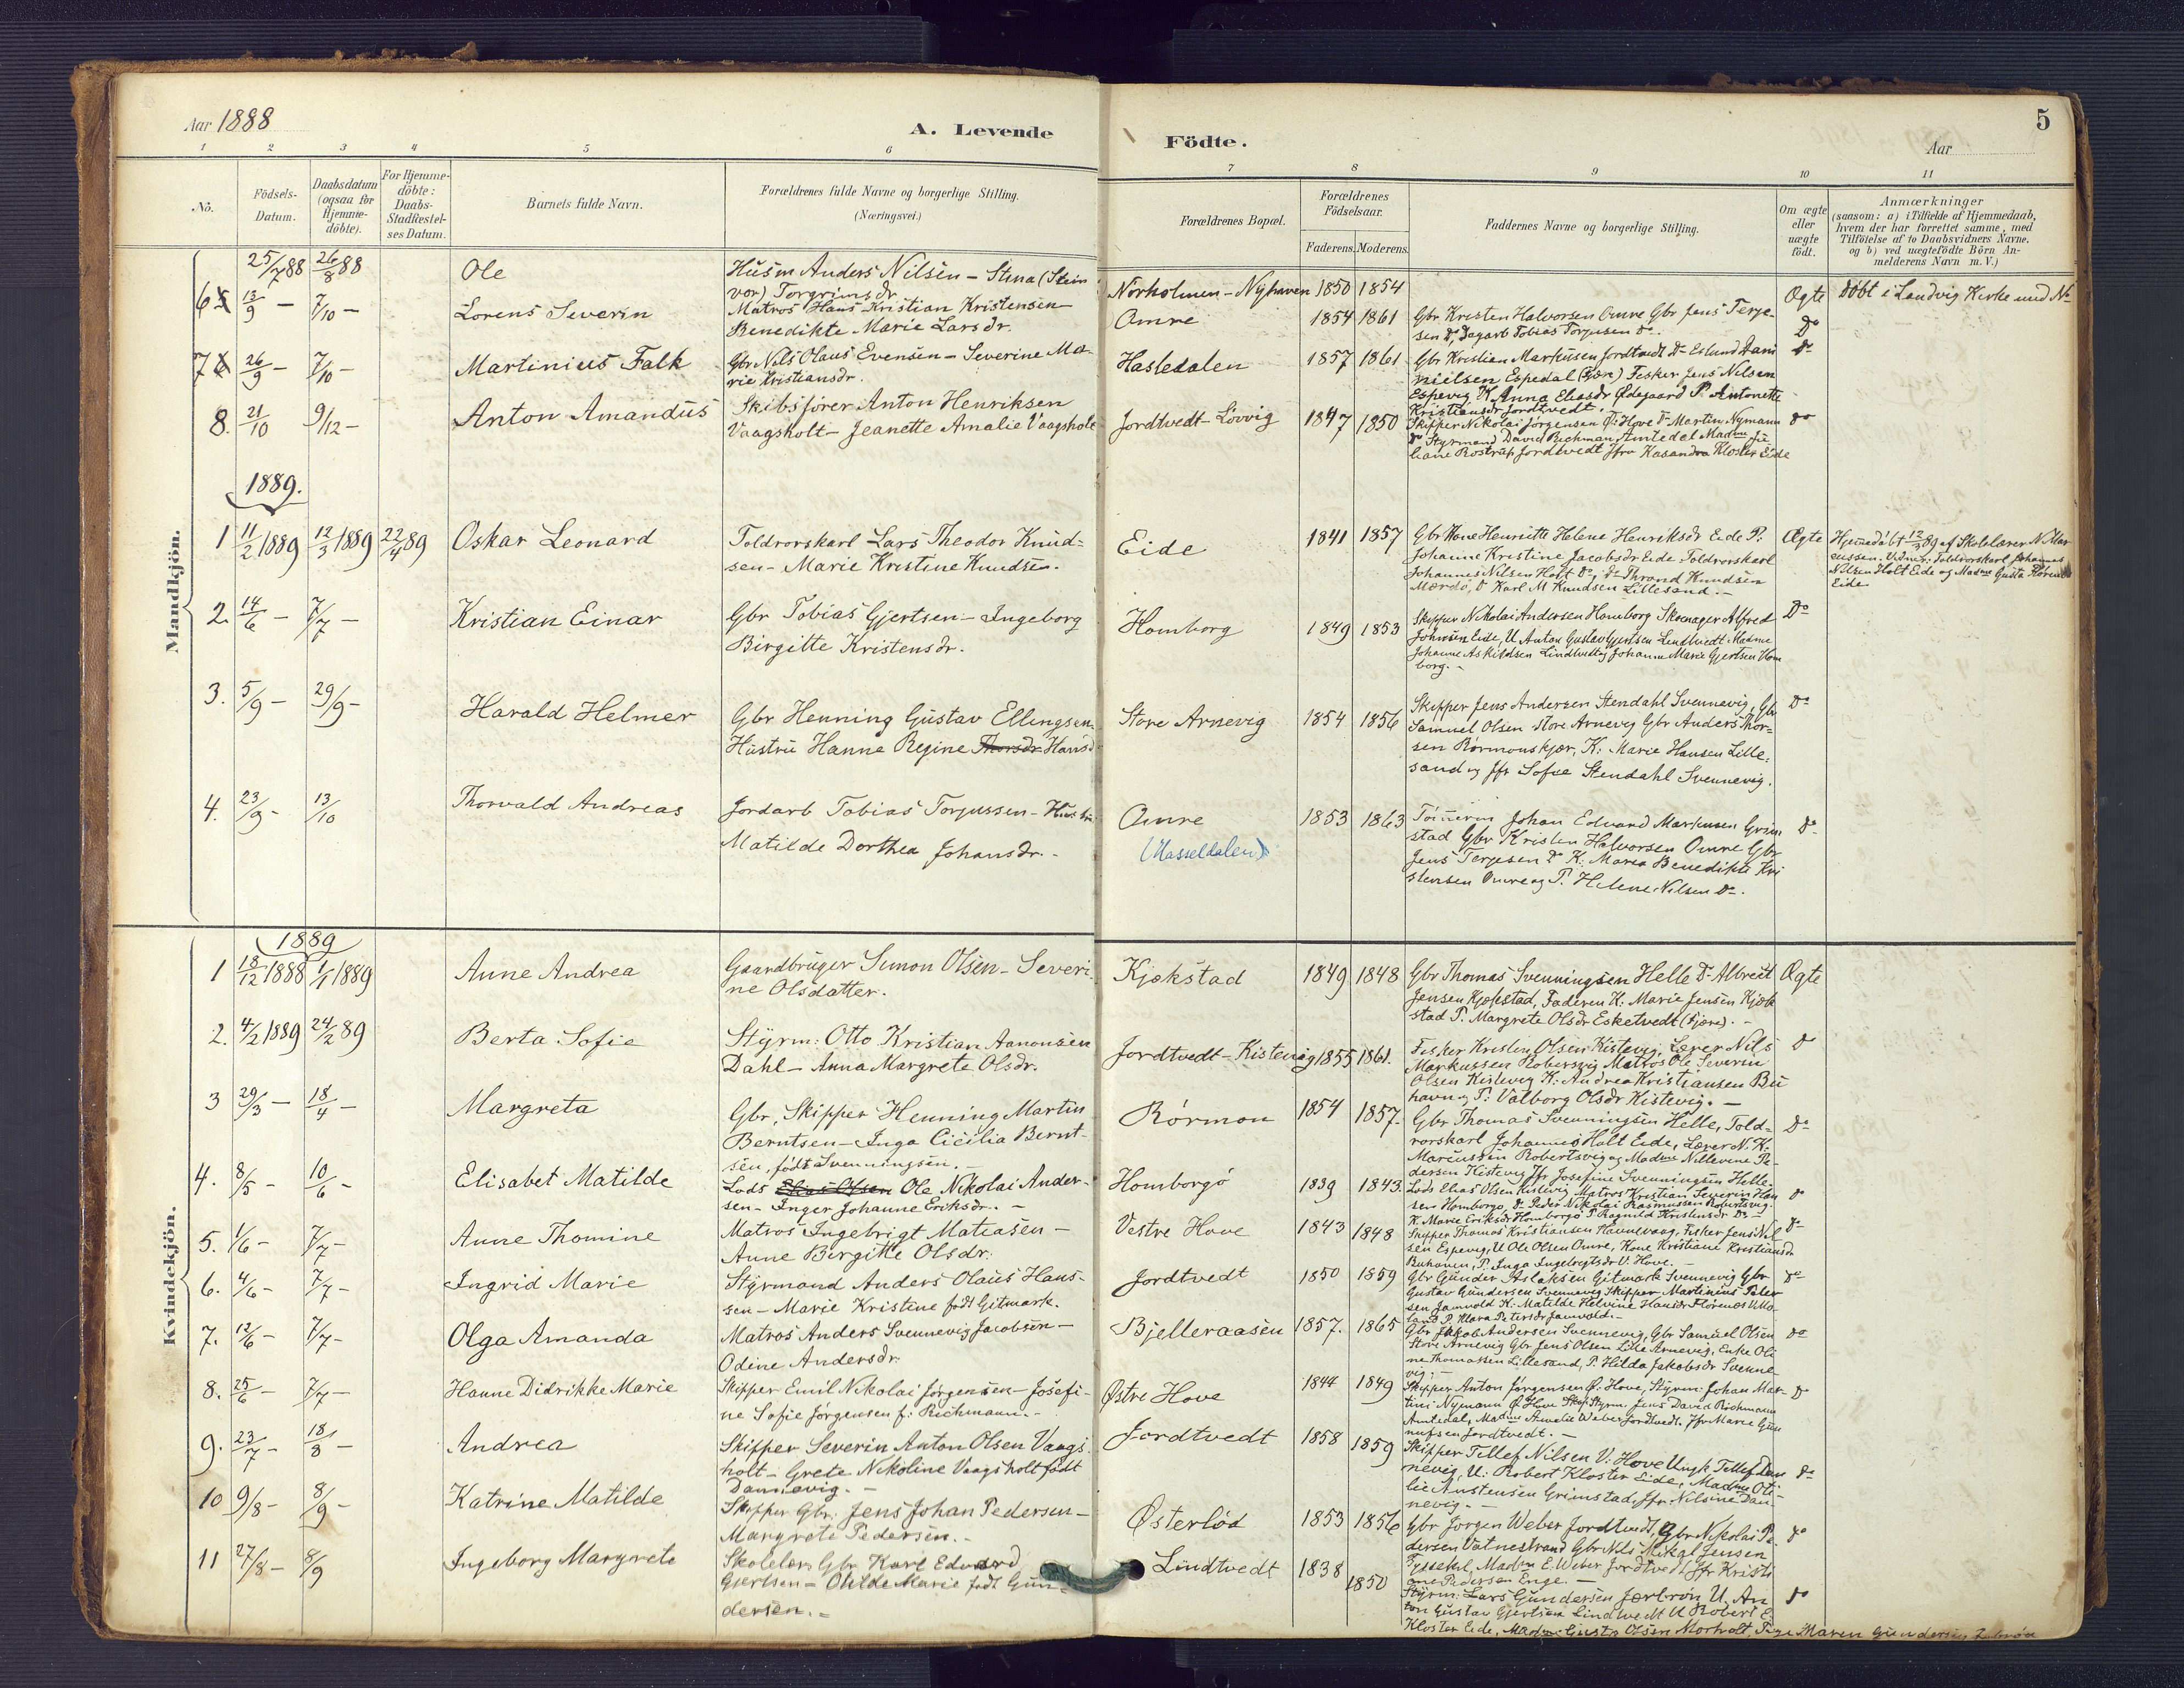 Aar 1888
A. Levende
Födte.
5
Aar
1 2 3 4 5 6 7 8 9 10 11
No.
Födsels-Datum.
Daabsdatum (ogsaa for Hjemme-döbte).
For Hjemme-döbte: Daabs-Stadfæstel-ses Datum.
Barnets fulde Navn.
Forældrenes fulde Navne og borgerlige Stilling. (Næringsvei.)
Forældrenes Bopæl.
Forældrenes Födselsaar.
Faderens. Moderens.
Faddernes Navne og borgerlige Stilling.
Om ægte eller uægte födt.
Anmærkninger (saasom: a) i Tilfælde af Hjemmedaab, hvem der har forrettet samme, med Tilföielse af to Daabsvidners Navne, og b) ved uægtefödte Börn An-melderens Navn m. V.)
Mandkjön.
25/7 88 26/8 88 Ole
Husm Anders Nilsen - Stina (Stein
vor) Torgrimsdr
Norholmen - Nyhaven 1850 1854
Ægte Döbt i Landvig Kirke und No
6 13/9 - 7/10 - Lorens Severin
Matros Hans Kristian Kristensen
Benedikte Marie Larsdr.
Omre 1854 1861
Gbr Kristen Halvorsen Omre Gbr Jens Terje-
sen Do, Dagarb Tobias Torjusen Do.
Do
7 26/9 - 7/10 - Martinius Falk
Gbr Nils Olaus Evensen - Severine Ma-
rie Kristiansdr.
Hasledalen 1857 1861
Gbr Kristian Markusen Jordtvedt Do Eslund Dani
nielsen Espedal (Fjære) Fisker Jens Nilsen
Espevig K. Anna Eliasdr Ødegaard P. Antonette
Kristiansdr Jordtvedt.
Do
8. 21/10 9/12 - Anton Amandus
Skibsförer Anton Henriksen
Vaagsholt - Jeanette Amalie Vaagsholt
Jordtvedt - Lövvig 1847 1850
Skipper Nikolai Jörgensen Ø. Hove Do Martin Nymann
Do Styrmand David Richman Amtedal Madme Ju
liane Rostrup Jordtvedt Jfr Kasandra Kloster Eide
Do
1889.
1 11/2 1889 12/3 1889 22/4 89 Oskar Leonard
Toldrorskarl Lars Theodor Knud-
sen - Marie Kristine Knudsen.
Eide 1841 1857
Gbr Kone Henriette Helene Henriksdr Eide P.
Johanne Kristine Jacobsdr Eide Toldrorskarl
Johannes Nilsen Holt Do, Do Thrond Knudsen
Mærdö, Do Karl M Knudsen Lillesand. -
Ægte
Hjemmedöbt 12/3 89 af Skolelærer N. Mar
cussen. Vidner: Toldrorskarl Johannes
Nilsen Holt Eide og Madme Gusta Flörenæs
Eide
2. 14/6 - 7/7 - Kristian Einar
Gbr Tobias Gjertsen - Ingeborg
Birgitte Kristensdr.
Homborg 1849 1853
Skipper Nikolai Andersen Homborg Skomager Alfred
Johnsen Eide, U. Anton Gustav Gjertsen Lindtvedt Madme
Johanne Askildsen Lindtvedt og Johanne Marie Gjertsen Hom
borg. -
Do
3. 5/9 - 29/9 - Harald Helmer
Gbr Henning Gustav Ellingsen
Hustru Hanne Regine Thorsdr Hansd
Store Arnevig 1854 1856
Skipper Jens Andersen Stendahl Svennevig, Gbr
Samuel Olsen store Arnevig Gbr Anders Thor-
sen Rörmonskjær, K: Marie Hansen Lille-
sand og Jfr Sofie Stendahl Svennevig.
Do
4. 23/9 - 13/10 Thorvald Andreas
Jordarb Tobias Torjussen - Hustru
Matilde Dorthea Johansdr. -
Omre 1853 1863
(Hasseldalen)
Johan Edvard Markusen Grim
stad Gbr Kristen Halvorsen Omre Gbr
Jens Terjesen Do K: Maria Benedikte Kri
stensen Omre og P. Helene Nilsen Do -.
Do
Kvindekjön.
1889
1 18/12 1888 1/1 1889 Anne Andrea
Gaardbruger Simon Olsen - Severi-
ne Olsdatter.
Kjækstad 1849 1848
Gbr Thomas Svenningsen Helle Do Albrect
Jensen Kjækstad, Faderen K: Marie Jensen Kjæk
stad P. Margrete Olsdr Esketvedt (Fjære). -
Ægte
2. 4/2 1889 24/2 89 Berta Sofie
Styrm: Otto Kristian Aanonsen
Dahl - Anna Margrete Olsdr.
Jordtvedt - Kistevig 1855 1861.
Fisker Kristen Olsen Kistevig, Lærer Nils
Markussen Robersvig Matros Ole Severin
Olsen Kistevig K: Andrea Kristiansen Bu
havn og P. Valborg Olsdr Kistevig. -
Do
3 29/3 - 18/4 - Margreta
Gbr, Skipper Henning Martin
Berntsen - Inga Cicilia Bernt-
sen, födt Svenningsen. -
Rörmon 1854 1857.
Gbr Thomas Svenningsen Helle, Told-
rorskarl Johannes Holt Eide, Lærer N. K.
Marcussen Robertsvig og Madme Nillevine Pe-
dersen Kistevig Jfr Josefine Svenningsen Helle
Do
4. 8/5 - 10/6 - Elisabet Matilde
Lods Elias Olsen Ole Nikolai Ander-
sen - Inger Johanne Eriksdr. -
Homborgö 1839 1843.
Lods Elias Olsen Kistevig Matros Kristian Severin Han
sen Homborgö, Do Peder Nikolai Rasmussen Robertsvig
K. Marie Eriksdr Homborgö P Ragnild Kristensdr Do -
Do
5. 1/6 - 7/7 - Anne Thomine
Matros Ingebrigt Matiasen -
Anne Birgitte Olsdr.
Vestre Hove 1843 1848
Skipper Thomas Kristiansen Havnevaag, Fisker Jens Nil
sen Espevig, U Ole Olsen Omre, Kone Kristiane Kristiansdr
Buhaven, P. Inga Ingebrigtsdr V. Hove. -
Do
6. 4/6 - 7/7 - Ingrid Marie
Styrmand Anders Olaus Hans-
sen - Marie Kristine født Gitmark.
Jordtvedt 1850 1859
Gbr Gunder Aslaksen Gitmark Svennevig Gbr
Gustav Gundersen Svennevig Skipper Martinius Peter
sen Jamvold K: Matilde Helvine Hansdr Flörenæs
P. Klara Petersdr Jamvold. -
Do
7. 12/6 - 7/7 - Olga Amanda
Matros Anders Svennevig Jacobsen -
Odine Andersdr.
Bjelleraasen 1857. 1865
Gbr Jakob Andersen Svennevig, Gbr Samuel Olsen
Store Arnevig Gbr Jens Olsen Lille Arnevig, Enke Oli
ne Thomassen Lillesand, P. Hilda Jakobsdr Svenne-
vig. -
Do
8. 25/6 - 7/7 - Hanne Didrikke Marie
Skipper Emil Nikolai Jörgensen - Josefi-
ne Sofie Jörgensen f: Richmann. -
Østre Hove 1844 1849
Skipper Anton Jörgensen Ø: Hove, Styrm: Johan Mar-
tini Nymann Ø Hove Styrm. Jens David Richmann
Amtedal, Madme Amalie Weber Jordtvedt. Jfr Marie Gun
nufsen Jordtvedt. -
Do
9. 23/7 - 18/3 - Andrea
Skipper Severin Anton Olsen Vaags
holt - Grete Nikoline Vaagsholt født
Dannevig. -
Jordtvedt 1858 1859
Skipper Tellef Nilsen V: Hove Ungk Tellef Dan
nevig, U: Robert Kloster Eide, Madme Oti-
lie Austensen Grimstad, Jfr. Nilsine Dan-
nevig. -
Do
10 9/8 - 8/9 - Katrine Matilde
Skipper Gbr: Jens Johan Pedersen -
Margrete Pedersen. -
Østerlöd 1853 1856
Gbr Jörgen Weber Jordtvedt, Gbr Nikolai Pe-
dersen Vatnestrand Gbr Nils Mikal Jensen
Tyssekil, Madm E. Weber Jordtvedt Jfr Kristi
ane Pedersen Enge. -
Do
11 27/8 - 8/9 Ingeborg Margrete
Skolelær Gbr Karl Edvard
Gjertsen - Otilde Marie født Gun-
dersen. -
Lindtvedt 1838 1850
Styrm: Lars Gundersen U. An
ton Gustav Gjertsen Lindtvedt U Robert E
Kloster Eide, Madm: Gusta Olsen Morholt, Pige Maren Gundersen
Do